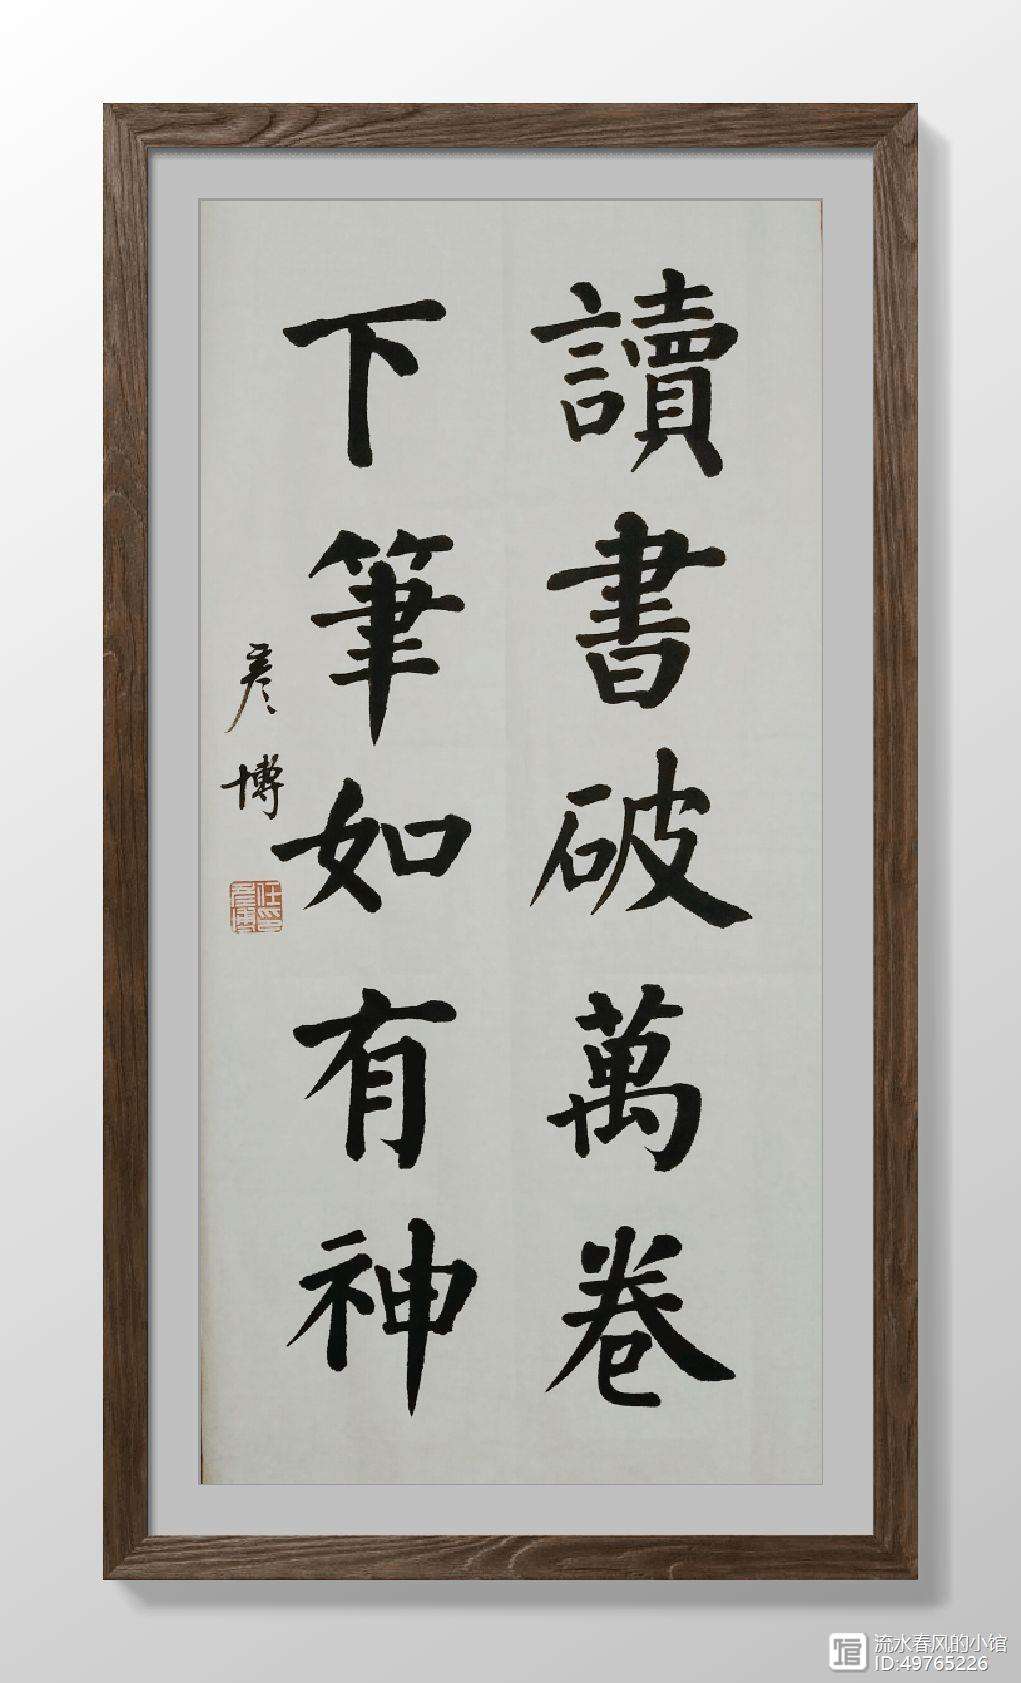 讀書破萬卷
下筆如有神
彦博
任彦博印
流水春风的小馆
ID:49765226